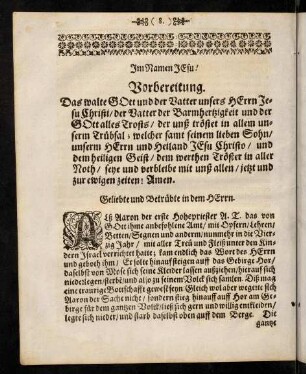 ( 8. )
Im Namen JEsu!
Vorbereitung.
Das walte GOtt und der Vatter unsers HErrn Je-
su Christi, der Vatter der Barmhertzigkeit und der
GOtt alles Trosts / der uns tröstet in allem un-
serm Trübsal / welcher samt seinem lieben Sohn/
unserm HErrn und Heiland JEsu Christo / und
dem heiligen Geist / dem werthen Tröster in aller
Noth / seye und verbleibe mit uns allen / jetzt und
zur ewigen zeiten! Amen.
Geliebte und Betrübte in dem HErrn.
ALß Aaron der erste Hohepriester A. T. das von
GOtt ihme anbefohlene Amt / mit Opfern / Lehren/
Betten / Segnen und anderm / nunmehr in die Vier-
zig Jahr / mit aller Treü und Fleiß unter den Kin-
dern Israel verrichtet hatte; kam endlich das Wort des HErrn
und geboth ihm / Er solte hinauf steigen auff das Gebirge Hor/
daselbst von Mose sich seine Kleider lassen außziehen / hierauf sich
niederlegen / sterben / und also zu seinem Volck sich samlen. Diß mag
eine traurige Bottschafft gewest seyn. Gleich wol aber wegerte sich
Aaron der Sache nicht / sondern stieg hinauff auff Hor am Ge-
birge für dem gantzen Volck / ließ sich gern und willig entkleiden/
legte sich nieder / und starb daselbst oben auff dem Berge. Die
gantze